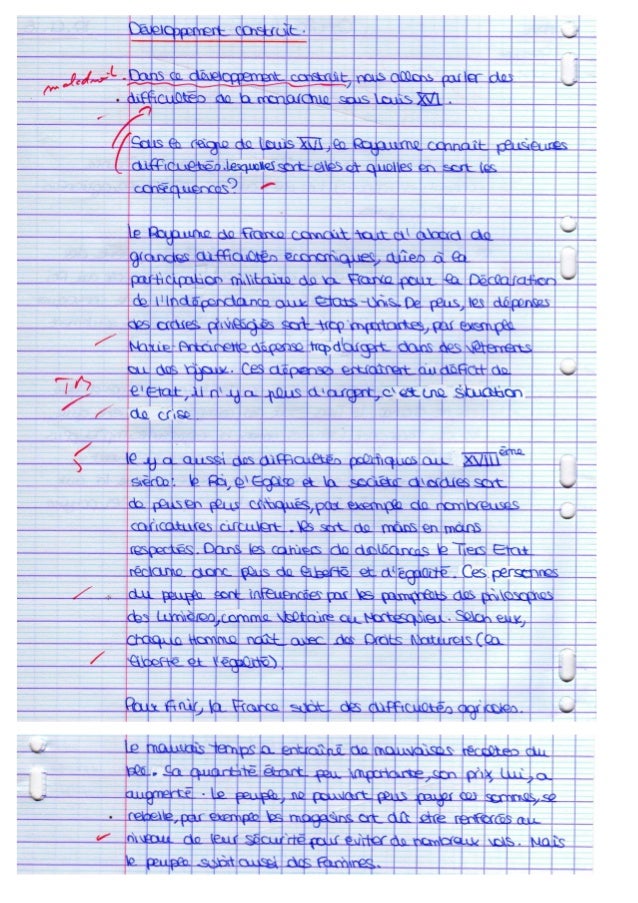 Développement construit.
maladroit
Dans ce développement construit, nous allons parler des
difficultés de la monarchie sous Louis XVI.
Sous le règne de Louis XVI, le Royaume connaît plusieures
difficultés. lesquelles sont-elles et quelles en sont les
conséquences?
le Royaume de France connaît tout d'abord de
grandes difficultés économiques, dûes à la
participation militaire de la France pour la Déclaration
de l'Indépendance aux Etats-Unis. De plus, les dépenses
des ordres privilégiés sont trop importantes, par exemple
Marie-Antoinette dépense trop d'argent dans des vêtements
ou des bijoux. Ces dépenses entraînent au déficit de
TB
l'Etat, il n'y a plus d'argent, c'est une situation
de crise.
Il y a aussi des difficultés politiques au XVIIIème
siècle: le Roi, l'Eglise et la société d'ordres sont
de plus en plus critiqués, par exemple de nombreuses
caricatures circulent. Ils sont de moins en moins
respectés. Dans les cahiers de doléances le Tiers Etat
réclame donc plus de liberté et d'égalité. Ces personnes
du peuple sont influencées par les pamphlets des philosophes
des Lumières, comme Voltaire ou Montesquieu. Selon eux,
chaque Homme naît avec des Droits Naturels (la
liberté et l'égalité).
Pour finir, la France subit des difficultés agricoles.
le mauvais temps a entraîné de mauvaises récoltes du
blé. Sa quantité étant peu importante, son prix, lui, a
augmenté. Le peuple, ne pouvant plus payer ces sommes, se
rebelle, par exemple les magasins ont dû être renforcés au
niveau de leur sécurité pour éviter de nombreux vols. Mais
le peuple subit aussi des famines.